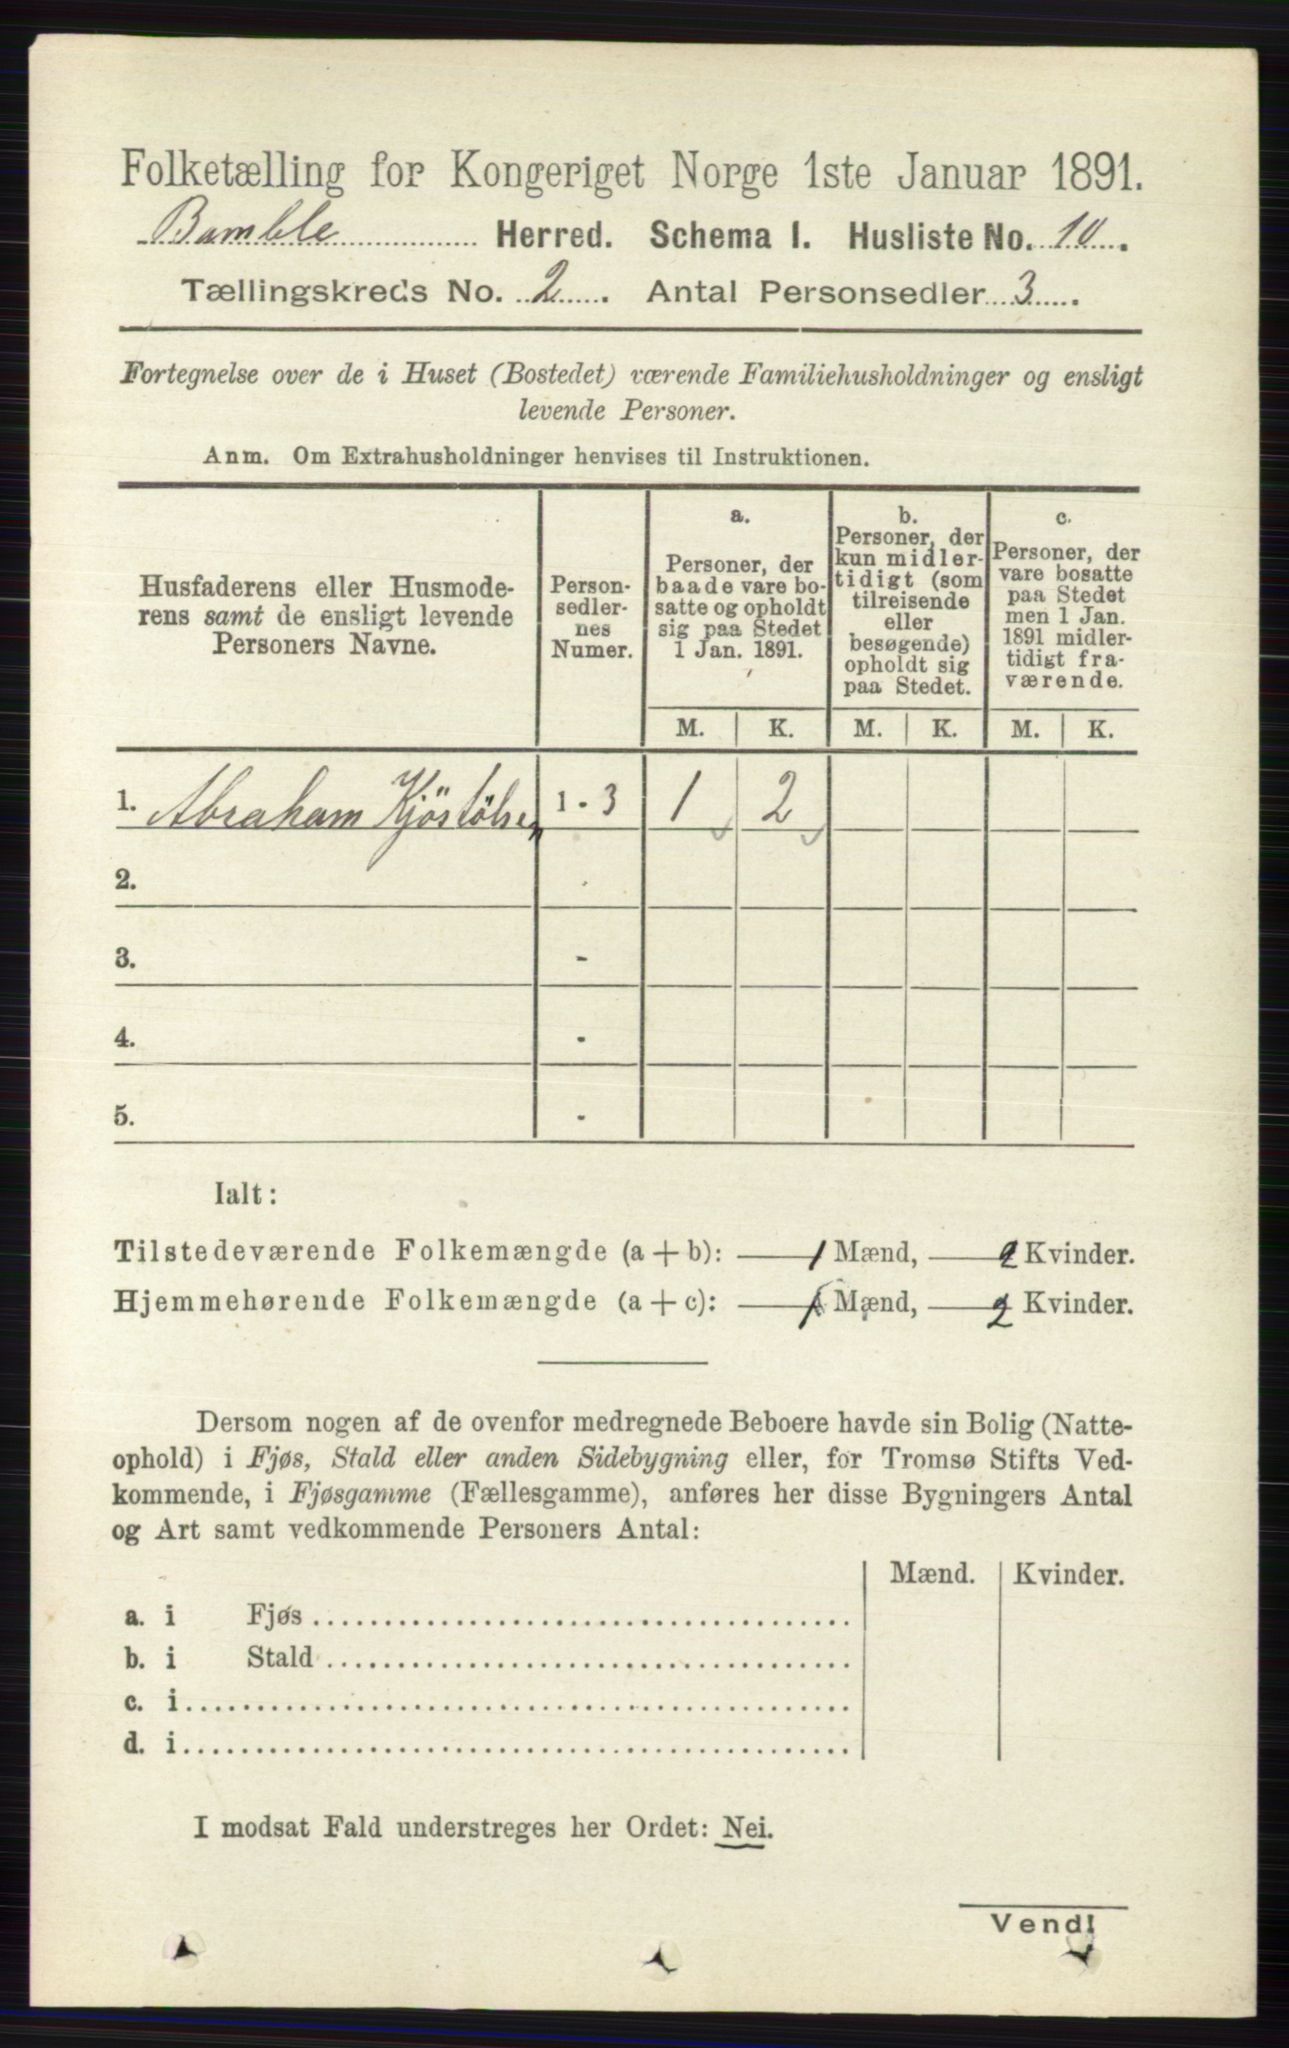 Folketælling for Kongeriget Norge 1ste Januar 1891.
Bamble Herred. Schema I. Husliste No. 10.
Tællingskreds No. 2. Antal Personsedler 3.
Fortegnelse over de i Huset (Bostedet) værende Familiehusholdninger og ensligt
levende Personer.
Anm. Om Extrahusholdninger henvises til Instruktionen.
Husfaderens eller Husmode-
rens samt de ensligt levende
Personers Navne.
Person-
sedler-
nes
Numer.
a.
Personer, der
baade vare bo-
satte og opholdt
sig paa Stedet
1 Jan. 1891.
b.
Personer, der
kun midler-
tidigt (som
tilreisende
eller
besøgende)
opholdt sig
paa Stedet.
c.
Personer, der
vare bosatte
paa Stedet
men 1 Jan.
1891 midler-
tidigt fra-
værende.
M. K. M. K. M. K.
1. Abraham Kjöstölsen 1 - 3 1 2
2.
3. -
4. -
5. -
Ialt:
Tilstedeværende Folkemængde (a + b): 1 Mænd, 2 Kvinder.
Hjemmehørende Folkemængde (a + c): 1 Mænd, 2 Kvinder.
Dersom nogen af de ovenfor medregnede Beboere havde sin Bolig (Natte-
ophold) i Fjøs, Stald eller anden Sidebygning eller, for Tromsø Stifts Ved-
kommende, i Fjøsgamme (Fællesgamme), anføres her disse Bygningers Antal
og Art samt vedkommende Personers Antal:
Mænd. Kvinder.
a. i Fjøs
b. i Stald
c. i
d. i
I modsat Fald understreges her Ordet: Nei.
Vend!